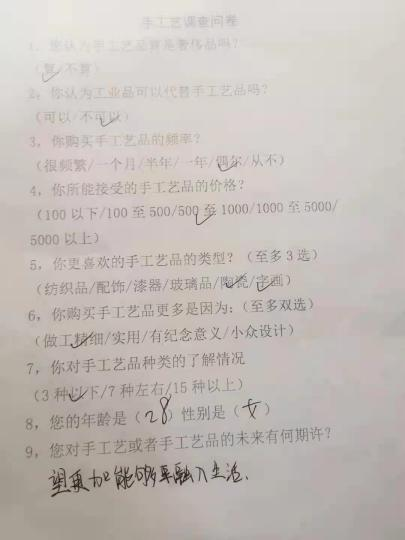 手工艺调查问卷
1，您认为手工艺品算是奢侈品吗？
（算/不算）
2，你认为工业品可以代替手工艺品吗？
（可以/不可以）
3，你购买手工艺品的频率？
（很频繁/一个月/半年/一年/偶尔/从不）
4，你所能接受的手工艺品的价格？
（100 以下/100 至 500/500 至 1000/1000 至 5000/
5000 以上）
5，你更喜欢的手工艺品的类型？（至多 3 选）
（纺织品/配饰/漆器/玻璃品/陶瓷/字画）
6，你购买手工艺品更多是因为:（至多双选）
（做工精细/实用/有纪念意义/小众设计）
7，你对手工艺品种类的了解情况
（3 种以下/7 种左右/15 种以上）
8，您的年龄是（28）性别是（女）
9，您对手工艺或者手工艺品的未来有何期许？
望更加能够融入生活.